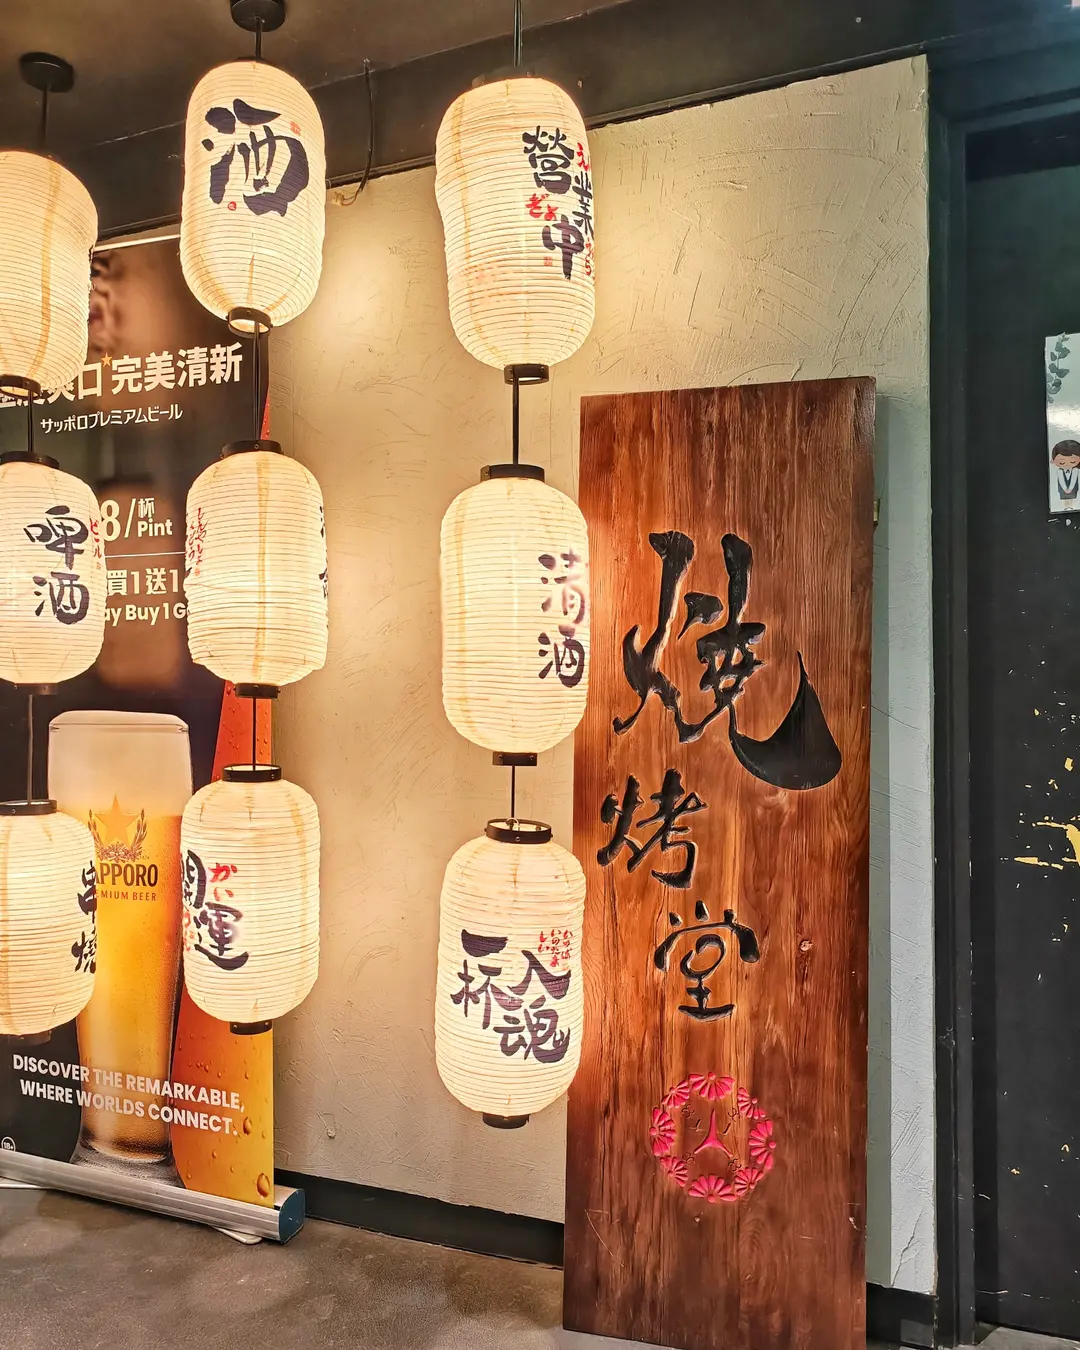 酒
營業中
えい
ぎょ
口★完美清新
サッポロプレミアムビール
8/杯
Pint
買1送1
Buy 1 G
啤酒
ビール
清酒
串燒
開運
かい
一杯入魂
SAPPORO
PREMIUM BEER
DISCOVER THE REMARKABLE,
WHERE WORLDS CONNECT.
18+
燒烤堂